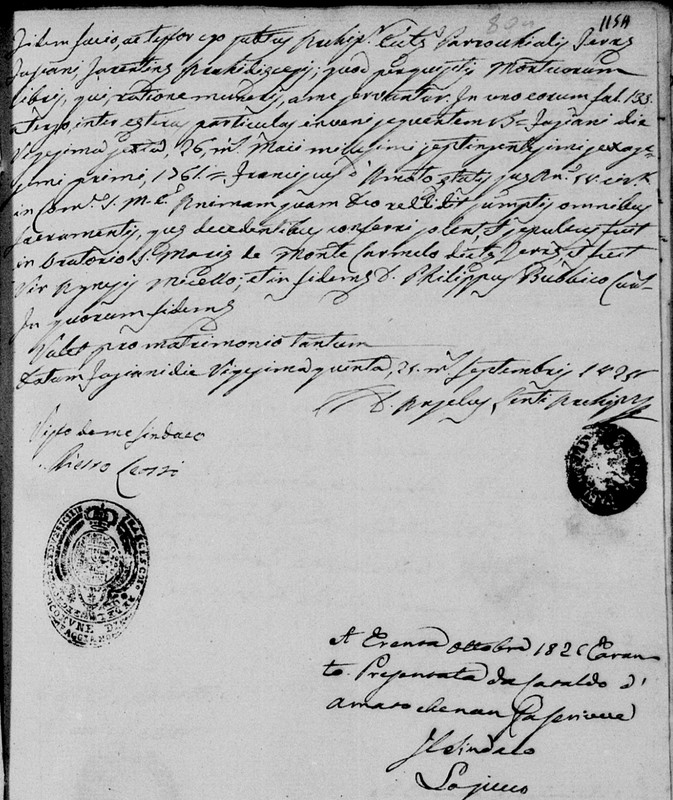 115A
Fidem facio, ac testor ego subtus Archip.r Eccl.æ Parrochialis Terræ
Fagiani, Tarentinæ Archidiæcesis; quod perquisitis Mortuorum
libris, qui, ratione muneris, a me servantur. In uno eorum fol. 133.
a tergo, inter cæteras particulas inveni sequentem V3 = Fagiani die
Vigesima sexta, 26, m. Maii millesimi septingentesimi sexage-
simi primi, 1761. = Franciscus d'Amato ætatis suæ An. circ.
in Com. S. M. E. Animam quam Deo reddidit sumptis omnibus
Sacramentis, quæ decedentibus conferri solent, et sepultus fuit
in Oratorio S. Mariæ de Monte Carmelo dictæ Terræ, et fuit
Vir Agnesis Micello; et in fidem D. Philippus Bubbico
In quorum fidem
Valet pro matrimonio tantum
Datum Fagiani die Vigesima quinta, 25. m. Septembris 1825
D. Angelus Lenti Archip.r
Visto da me Sindaco
Pietro
COMUNE DI
A Trenta ottobre 182 Taran-
to. Presentata da Cataldo d'
Amato che non sa scrivere
Il Sindaco